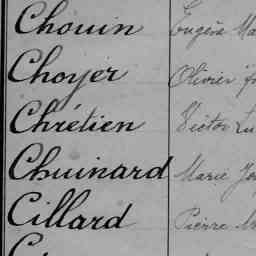 Chouin Eugène Ma
Choyer Olivier
Chrétien Victor Lu
Chuinard Marie Jos
Cillard Pierre